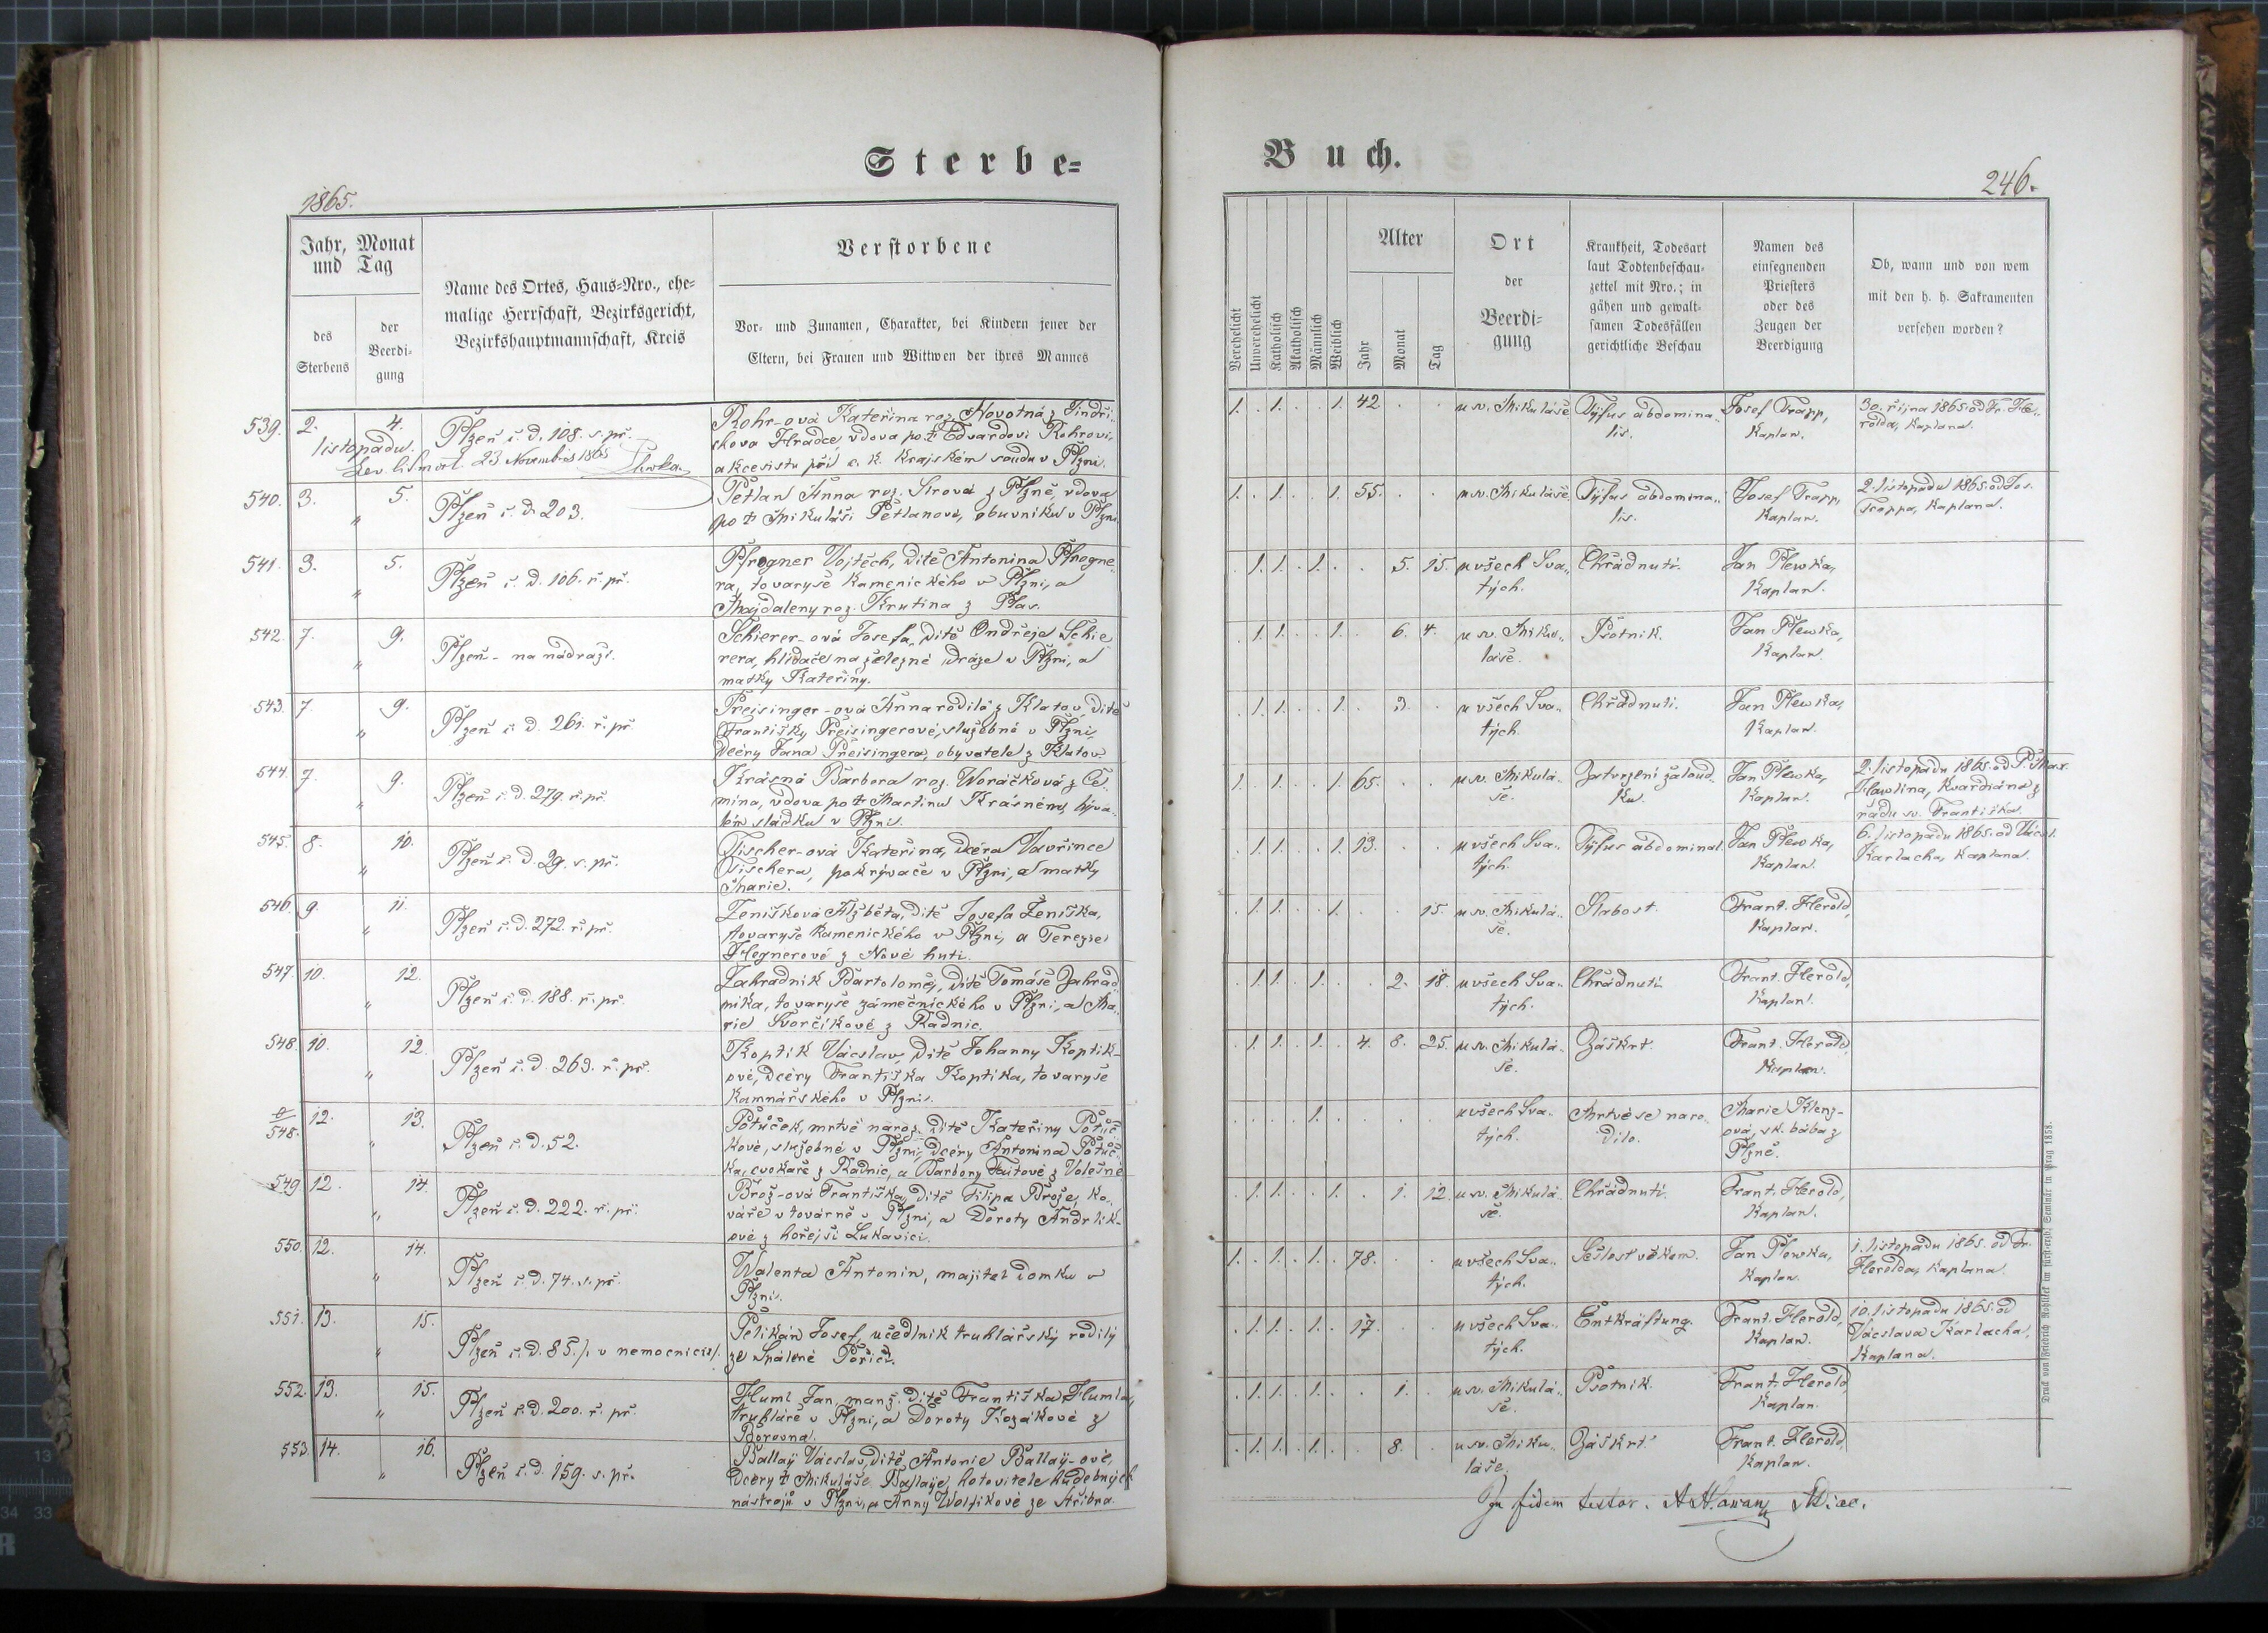 Sterbe=
1865.
Jahr, Monat
und Tag
des
Sterbens
der
Beerdi-
gung
Name des Ortes, Haus-Nro., ehe-
malige Herrschaft, Bezirksgericht,
Bezirkshauptmannschaft, Kreis
Verstorbene
Vor- und Zunamen, Charakter, bei Kindern jener der
Eltern, bei Frauen und Wittwen der ihres Mannes
539. 2. 4. Plzeň č. d. 108. s. př. Rohr-ová Kateřina roz. Novotná z Jindři-
listopadu. chova Hradce, vdova po † Edvardovi Rohrovi,
23 Novembris 1865 akcesistu při c. k. krajském soudu v Plzni.
540. 3. " 5. Plzeň č. d. 203. Petlan Anna roz. Sirová z Plzně, vdova
po † Mikuláši Petlanovi, obuvníku v Plzni.
541. 3. " 5. Plzeň č. d. 106. ř. př. Pfrogner Vojtěch, dítě Antonina Pfrogne-
ra, tovaryše kamenického v Plzni, a
Majdaleny roz. Krutina z Plas.
542. 7. " 9. Plzeň - na nádraží. Schierer-ová Josefa, dítě Ondřeje Schie
rera, hlídače na železné dráze v Plzni, a
matky Kateřiny.
543. 7. " 9. Plzeň č. d. 261. ř. př. Preisinger-ová Anna rodilá z Klatov, dítě
Františky Preisingerové, služebné v Plzni,
dcéry Jana Preisingera, obyvatele z Klatov.
544. 7. " 9. Plzeň č. d. 279. ř. př. Krásná Barbora roz. Woráčková z Če-
mína, vdova po † Martinu Krásném, býva-
lém sládku v Plzni.
545. 8. " 10. Plzeň č. d. 29. s. př. Tischer-ová Kateřina, dcéra Vavřince
Tischera, pokrývače v Plzni, a matky
Marie.
546. 9. " 11. Plzeň č. d. 272. ř. př. Ženíšková Alžběta, dítě Josefa Ženíška,
tovaryše kamenického v Plzni, a Terezie
Hegnerové z Nové huti.
547. 10. " 12. Plzeň č. d. 188. ř. př. Zahradník Bartoloměj, dítě Tomáše Zahrad
níka, tovaryše zámečnického v Plzni, a Ma-
rie Svorčíkové z Radnic.
548. 10. " 12. Plzeň č. d. 263. ř. př. Koptik Václav, dítě Johanny Koptik-
ové, dcéry Františka Koptika, tovaryše
kamnářského v Plzni.
0/548. 12. " 13. Plzeň č. d. 52. Potůček, mrtvě naroz. dítě Kateřiny Potůč
kové, služebné v Plzni, dcéry Antonina Potůč-
ka, cvokaře z Radnic, a Barbory Faitové z Volešné
549. 12. " 14. Plzeň č. d. 222. ř. př. Brož-ová Františka, dítě Filipa Brože, ko-
váře v továrně v Plzni, a Doroty Andrlík-
ové z hořejší Lukavici.
550. 12. " 14. Plzeň č. d. 74. s. př. Walenta Antonín, majitel domku v
Plzni.
551. 13. " 15. Plzeň č. d. 85. /. v nemocnici /. Pelikán Josef, učedlník truhlářský rodilý
ze Spálené Poříčí.
552. 13. " 15. Plzeň č. d. 200. ř. př. Huml Jan, manž. dítě Františka Humla,
truhláře v Plzni, a Doroty Kozákové z
Borovna.
553. 14. " 16. Plzeň č. d. 159. s. př. Ballaÿ Václav, dítě Antonie Ballaÿ-ové,
dcery † Mikuláše Ballaÿe, hotovitele hudebných
nástrojů v Plzni, a Anny Wolfíkové ze Stříbra.
Buch.
246.
Verehelicht
Unverehelicht
Katholisch
Akatholisch
Männlich
Weiblich
Alter
Jahr
Monat
Tag
Ort
der
Beerdi-
gung
Krankheit, Todesart
laut Todtenbeschau-
zettel mit Nro.; in
gähen und gewalt-
samen Todesfällen
gerichtliche Beschau
Namen des
einsegnenden
Priesters
oder des
Zeugen der
Beerdigung
Ob, wann und von wem
mit den h. h. Sakramenten
versehen worden?
1. . 1. . . 1. 42 . . u sv. Mikuláše Týfus abdomina- Josef Trapp, 30. října 1865. od Fr. He-
lis. Kaplan. rolda, kaplana.
1. . 1. . . 1. 55. . . u sv. Mikuláše. Týfus abdomina- Josef Trapp, 2. listopadu 1865. od Jos.
lis. Kaplan. Trappa, kaplana.
. 1. 1. . 1. . . 5. 15. u všech Sva- Chřádnutí. Jan Plewka,
tých. Kaplan.
. 1. 1. . . 1. . 6. 4. u sv. Miku- Psotník. Jan Plewka,
láše. Kaplan.
. 1. 1. . . 1. . 3. . u všech Sva- Chřádnutí. Jan Plewka,
tých. Kaplan.
1. . 1. . . 1. 65. . . u sv. Mikulá- Zatvrzení žaloud- Jan Plewka, 2. listopadu 1865. od P. Mar.
še. ku. Kaplan. Hawlína, kvardiána z
řádu sv. Františka.
. 1. 1. . . 1. 13. . . u všech Sva- Týfus abdominal. Jan Plewka, 6. listopadu 1865. od Václ.
tých. Kaplan. Karlacha, kaplana.
. 1. 1. . . 1. . . 15. u sv. Mikulá- Slabost. Frant. Herold,
še. Kaplan.
. 1. 1. . 1. . . 2. 18. u všech Sva- Chřádnutí. Frant. Herold,
tých. Kaplan.
. 1. 1. . 1. . 4. 8. 25. u sv. Mikulá- Záškrt. Frant. Herold,
še. Kaplan.
1. u všech Sva- Mrtvé se naro- Marie Klenz-
tých. dilo. ová, zk. bába z
Plzně.
. 1. 1. . . 1. . 1. 12. u sv. Mikulá- Chřádnutí. Frant. Herold,
še. Kaplan.
1. . 1. . 1. . 78. . . u všech Sva- Sešlost věkem. Jan Plewka, 1. listopadu 1865. od Fr.
tých. Kaplan. Herolda, kaplana.
. 1. 1. . 1. . 17. . . u všech Sva- Entkräftung. Frant. Herold, 10. listopadu 1865. od
tých. Kaplan. Václava Karlacha,
kaplana.
. 1. 1. . 1. . . 1. . u sv. Mikulá- Psotník. Frant. Herold
še. Kaplan.
. 1. 1. . 1. . . 8. . u sv. Miku- Záškrt. Frant. Herold,
láše. Kaplan.
In fidem testor.
Druck von Friedrich Rohlicek im fürsterzb. Seminär in Prag 1858.